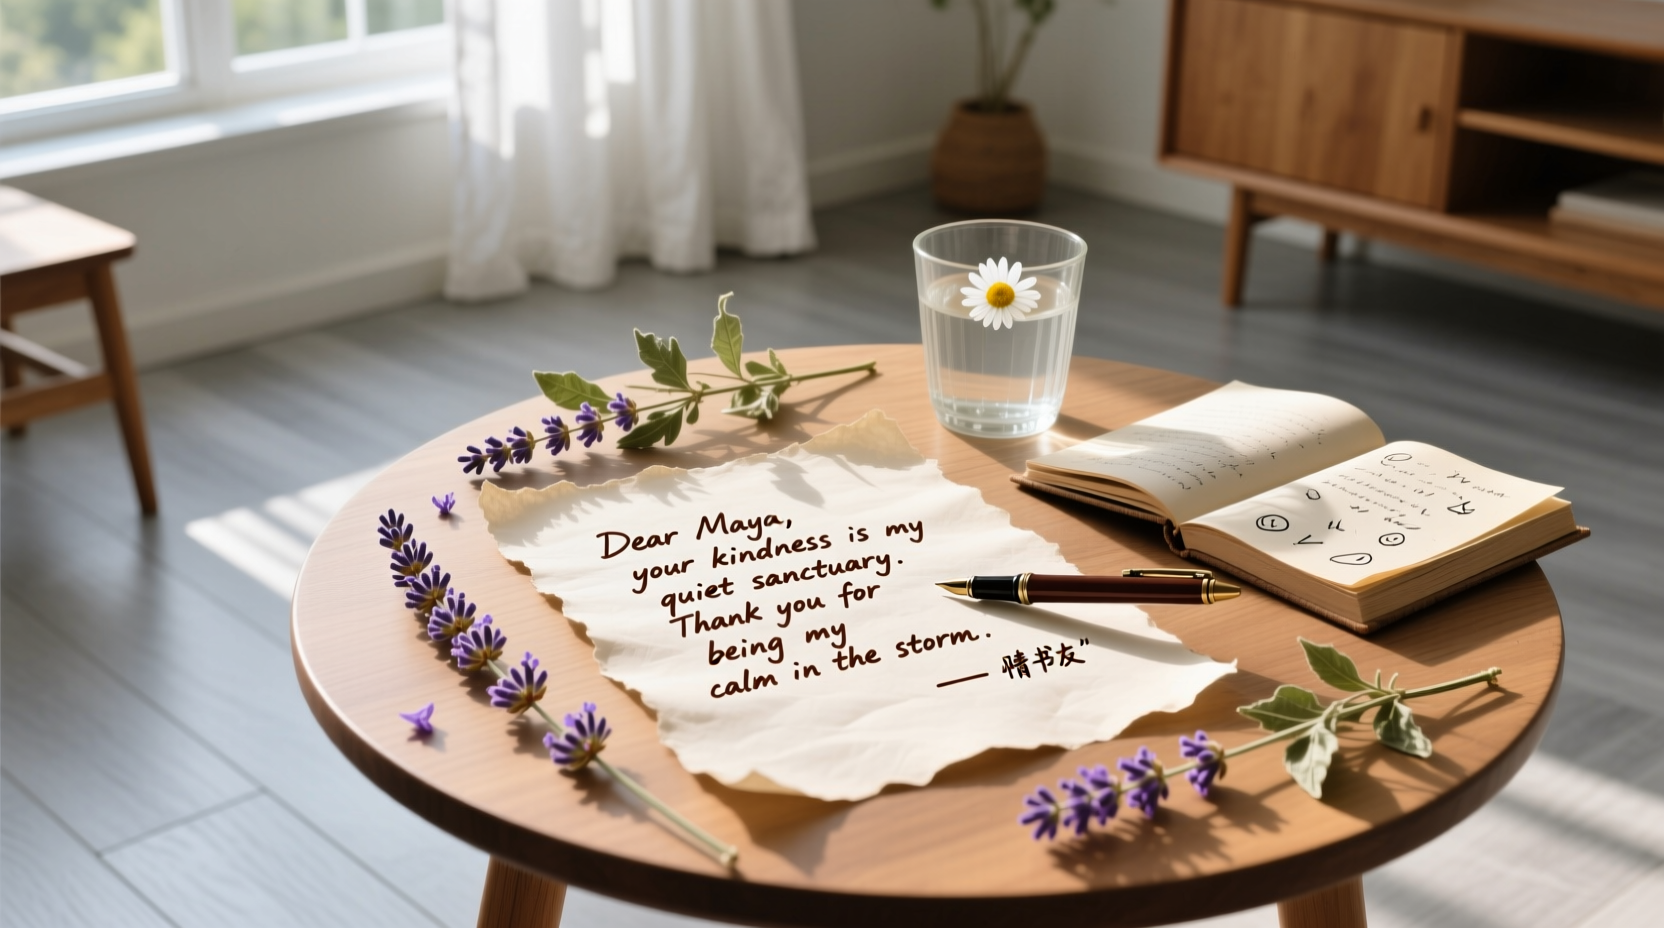 Dear Maya,
your kindness is my
quiet sanctuary.
Thank you for
being my
calm in the storm.
— 情书友”